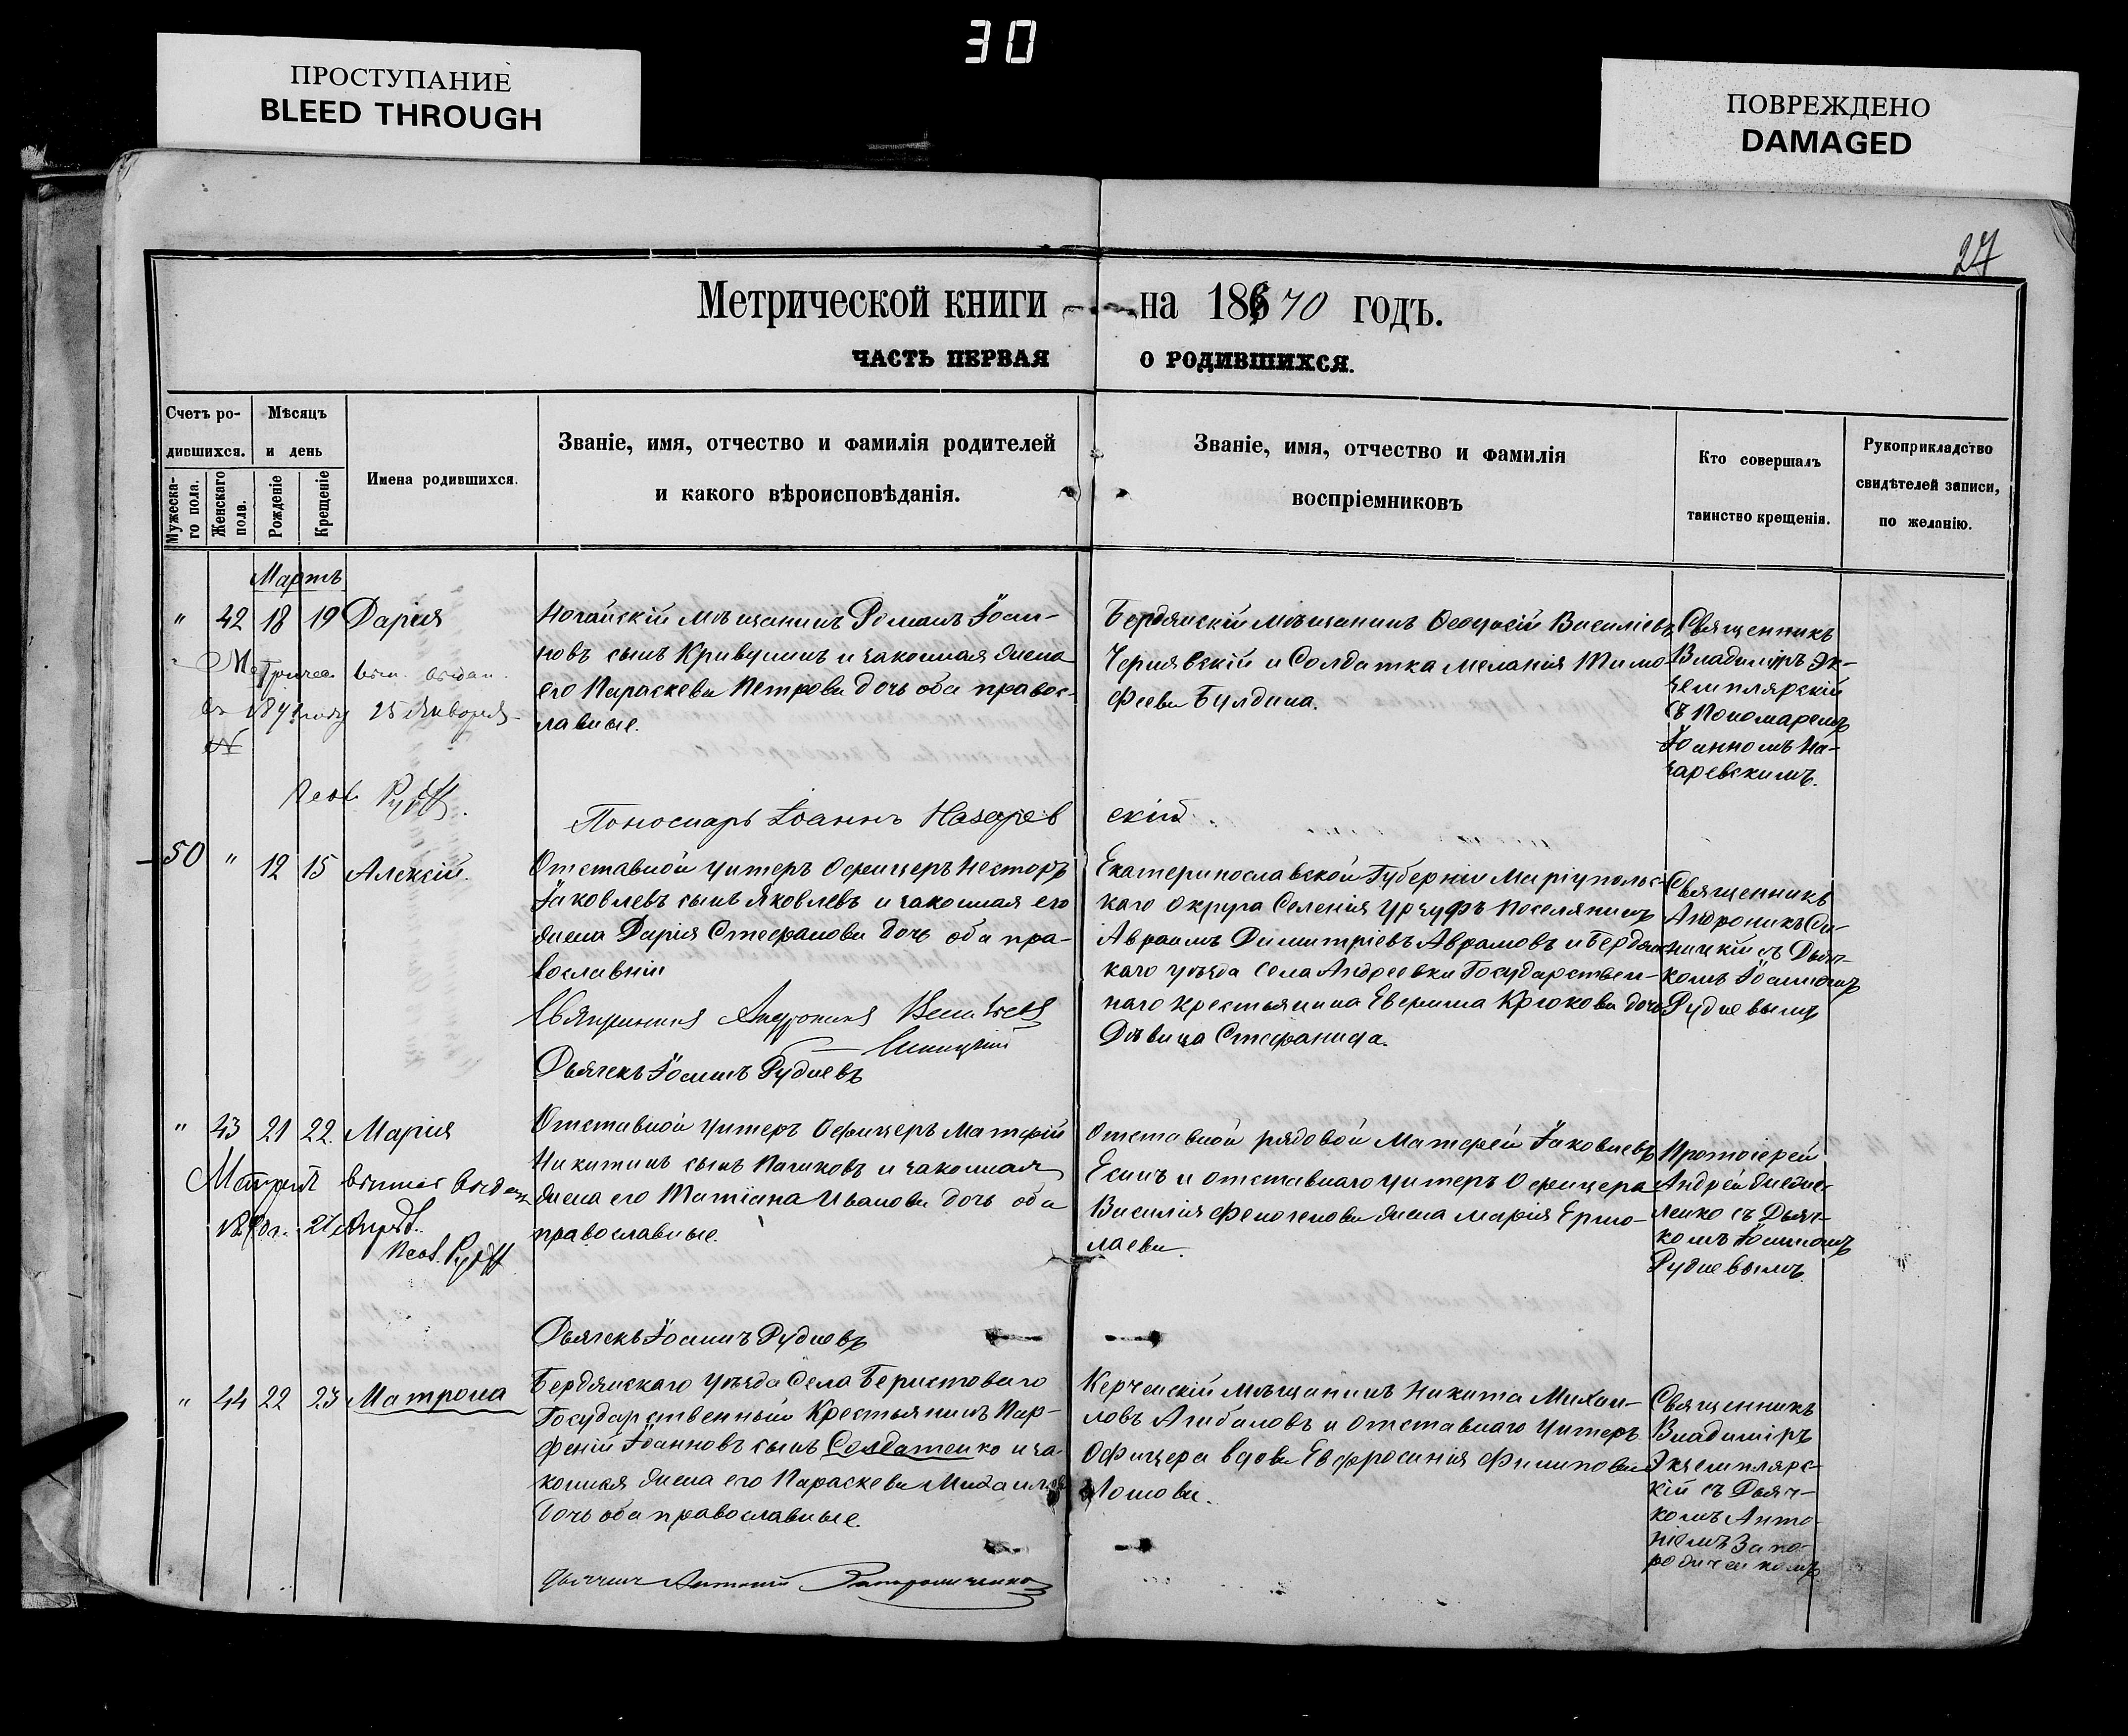 30
ПРОСТУПАНИЕ
BLEED THROUGH
ПОВРЕЖДЕНО
DAMAGED
27
Метрической книги на 18670 годъ.
ЧАСТЬ ПЕРВАЯ О РОДИВШИХСЯ.
Счетъ ро-
дившихся.
Мужеска-
го пола.
Женскаго
пола.
Мѣсяцъ
и день
Рожденіе
Крещеніе
Имена родившихся.
Званіе, имя, отчество и фамилія родителей
и какого вѣроисповѣданія.
Званіе, имя, отчество и фамилія
воспріемниковъ
Кто совершалъ
таинство крещенія.
Рукоприкладство
свидѣтелей записи,
по желанію.
Мартъ
" 42 18 19 Дарія
25 Января
Ногайскій мѣщанинъ Романъ Іоан-
новъ сынъ Кривушинъ и законная жена
его Параскева Петрова дочь оба правос-
лавные.
Бердянскій мѣщанинъ Ѳеодосій Василіевъ
Чернявскій и Солдатка Меланія Тимо-
феева Булдина.
Священникъ
Владиміръ Эк-
земплярскій
съ Пономаремъ
Іоанномъ На-
заревскимъ.
Пономарь Іоаннъ Назарев
скій
50 " 12 15 Алексій.
Отставной Унтеръ Офицеръ Несторъ
Іаковлевъ сынъ Яковлевъ и законная его
жена Дарія Стефанова дочь оба пра-
вославніи
Священникъ Андроникъ
Синицкій
Дьячекъ Іоаннъ Рудневъ
Екатеринославской Губерніи Маріупольс-
каго округа Селенія Урзуфъ поселянинъ
Авраамъ Димитріевъ Аврамовъ и Бердянс-
каго уѣзда села Андреевки Государствен-
наго крестьянина Крюкова дочь
Дѣвица Стефанида.
Священникъ
Андроникъ Си-
ницкій съ Дьяч-
комъ Іоанномъ
Рудневымъ
" 43 21 22. Марія
Отставной Унтеръ Офицеръ Матфій
Никитинъ сынъ и законная
жена его Татіана Иванова дочь оба
православные.
Отставной рядовой Матфей Іаковлевъ
Есинъ и отставнаго унтеръ Офицера
Василія жена Марія Ермо-
лаева.
Протоіерей
Андрей
ленко съ Дьяч-
комъ Іоанномъ
Рудневымъ
Дьячекъ Іоаннъ Рудневъ
" 44 22 23 Матрона
Бердянскаго Уѣзда Села Берестоваго
Государственный Крестьянинъ Пар-
феній Іоанновъ сынъ Солдатенко и за-
конная жена его Параскева Михаилова
дочь оба православные.
Керченскій Мѣщанинъ Никита Михаи-
ловъ Агибаловъ и Отставнаго Унтеръ
Офицера вдова Евфросинія Филипова
Священникъ
Владиміръ
Экземплярс-
кій съ Дьяч-
комъ Анто-
ніемъ
Антоній